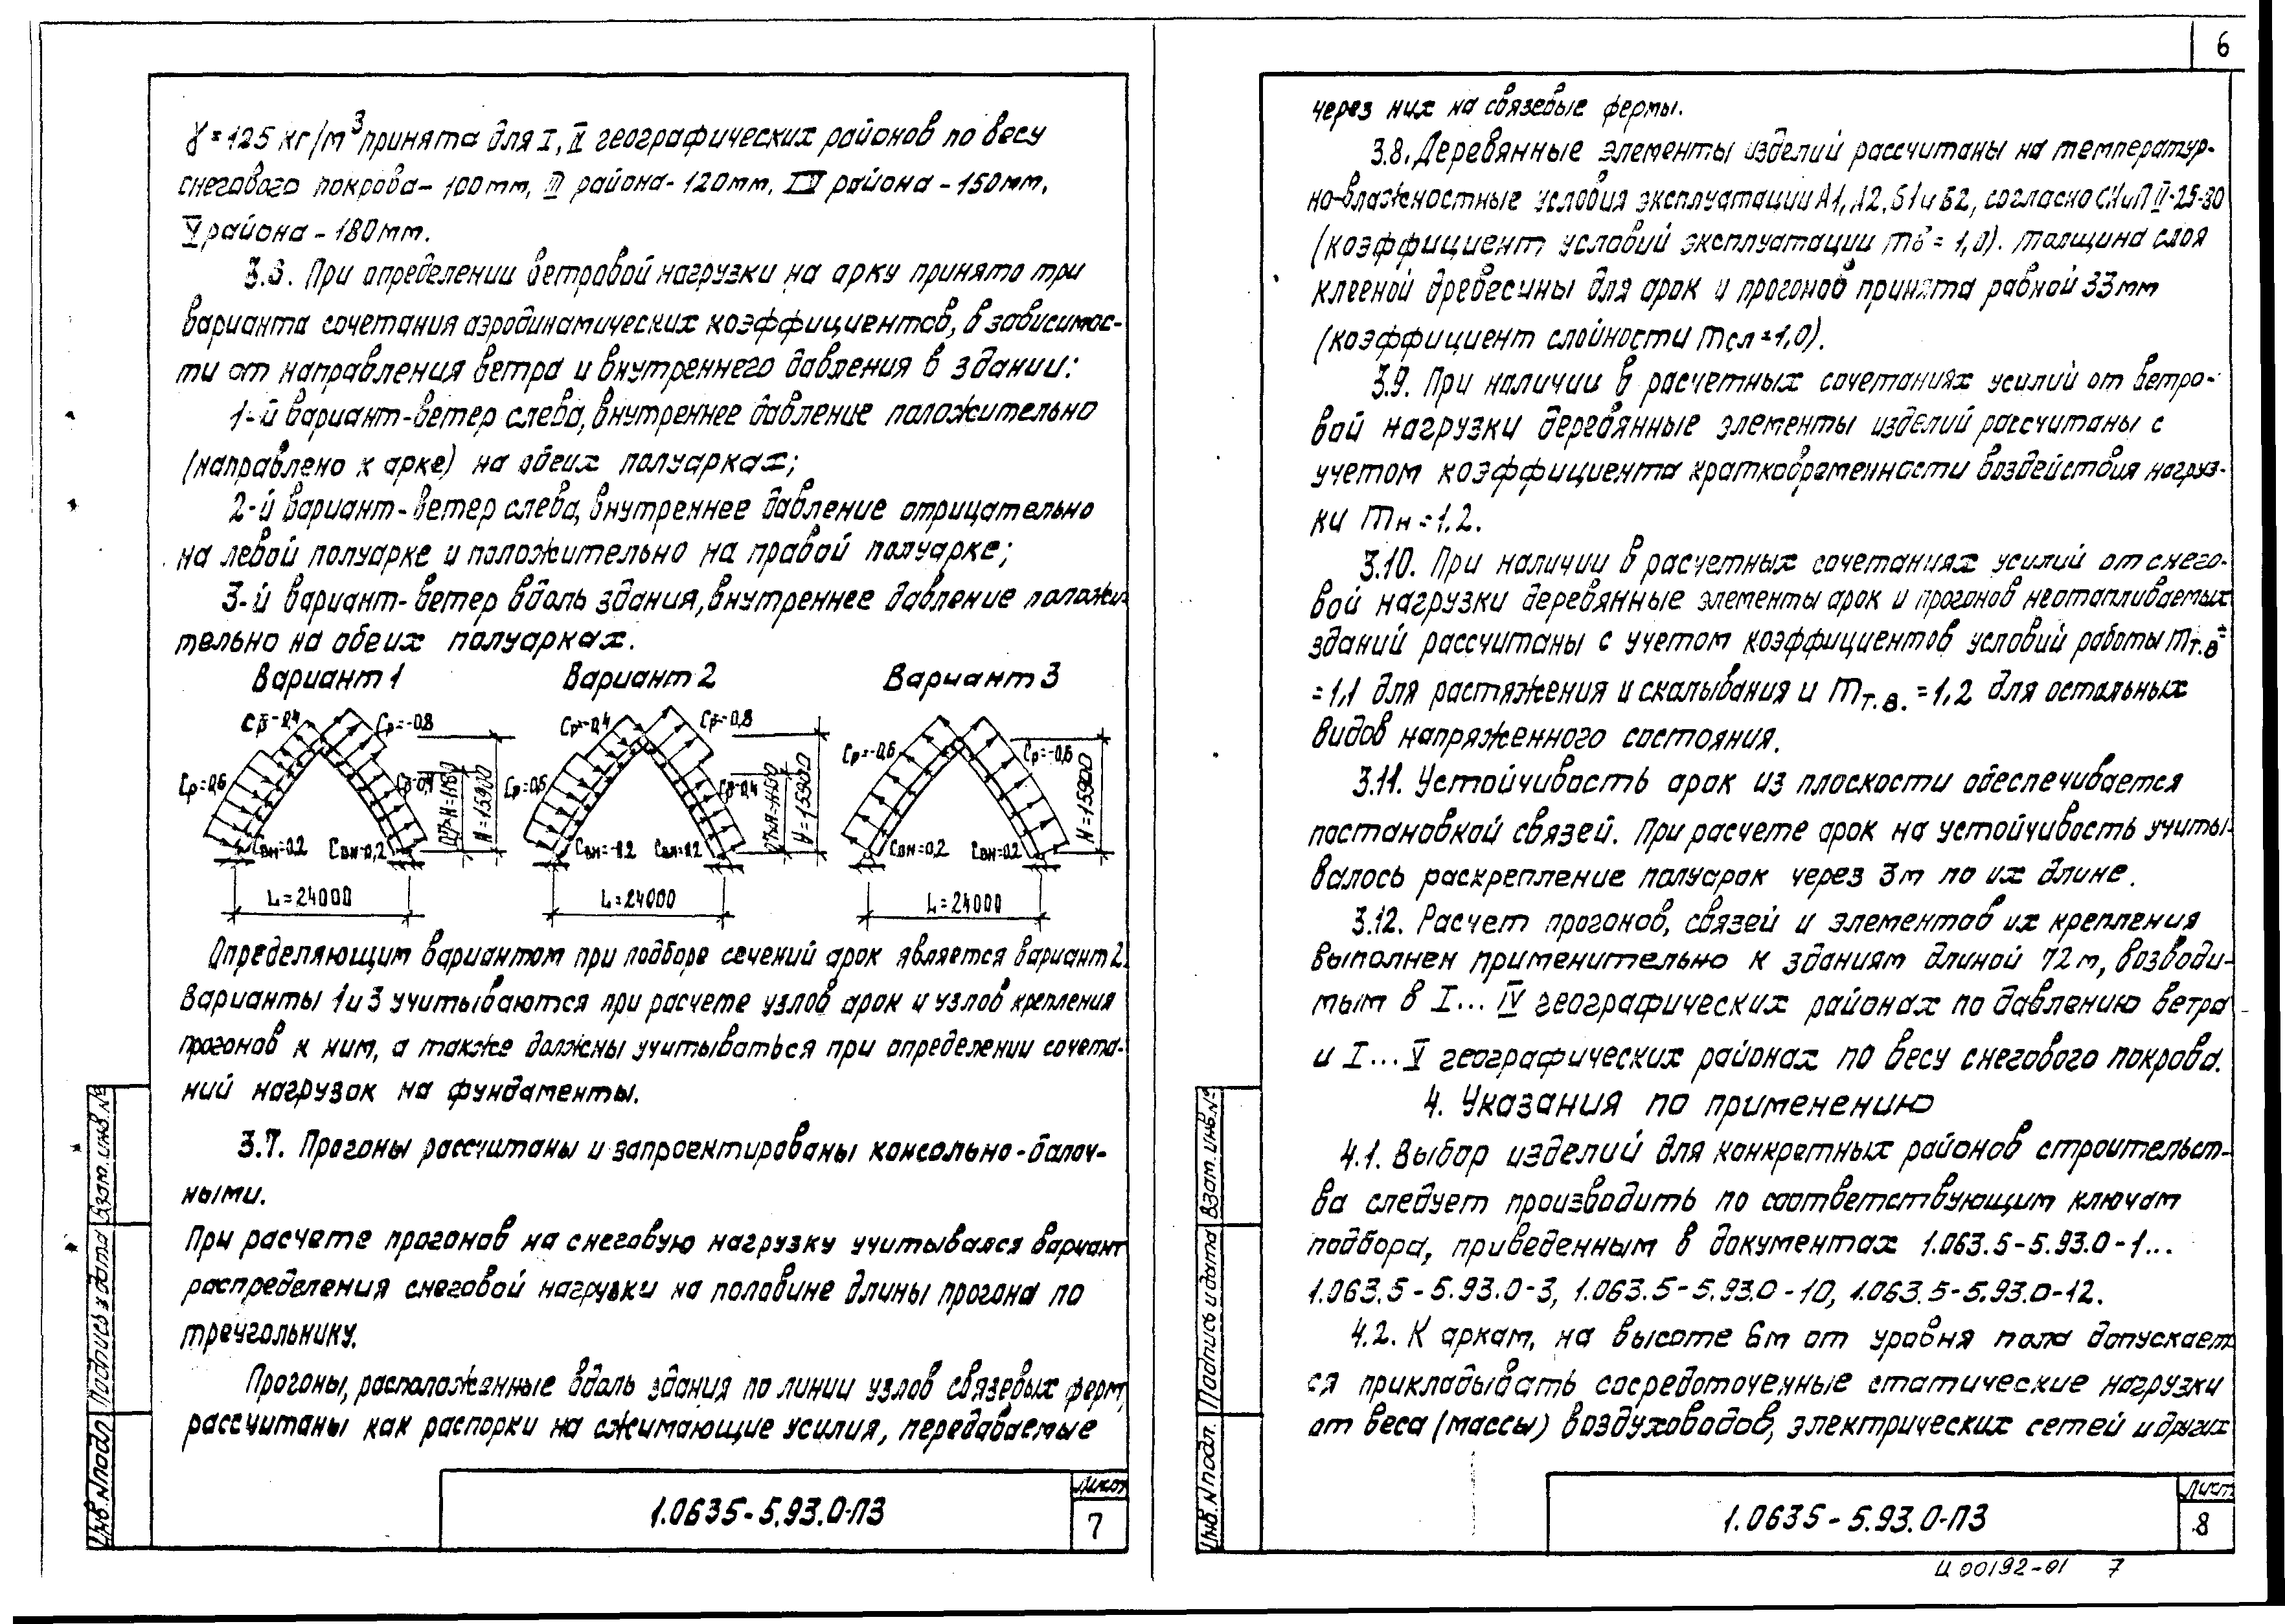 γ=125 кг/м³ принята для I, II географических районов по весу
снегового покрова- 100мм, III района- 120мм, IV района - 150мм,
V района - 180мм.
3.6. При определении ветровой нагрузки на арку принято три
варианта сочетания аэродинамических коэффициентов, в зависимос-
ти от направления ветра и внутреннего давления в здании:
1-й вариант-ветер слева, внутреннее давление положительно
(направлено к арке) на обеих полуарках;
2-й вариант-ветер слева, внутреннее давление отрицательно
на левой полуарке и положительно на правой полуарке;
3-й вариант-ветер вдоль здания, внутреннее давление положи-
тельно на обеих полуарках.
Вариант 1
Вариант 2
Вариант 3
Ср=-0,4
Ср=-0,8
Ср=0,6
Ср=-0,4
0,7×H=11130
H=15900
Свн=0,2
Свн=0,2
L=24000
Ср=-0,4
Ср=-0,8
Ср=0,6
Ср=-0,4
H=15900
Свн=-0,2
Свн=0,2
L=24000
Ср=-0,6
Ср=-0,6
H=15900
Свн=0,2
Свн=0,2
L=24000
Определяющим вариантом при подборе сечений арок является вариант 2.
Варианты 1 и 3 учитываются при расчете узлов арок и узлов крепления
прогонов к ним, а также должны учитываться при определении сочета-
ний нагрузок на фундаменты.
3.7. Прогоны рассчитаны и запроектированы консольно-балоч-
ными.
При расчете прогонов на снеговую нагрузку учитывался вариант
распределения снеговой нагрузки на половине длины прогона по
треугольнику.
Прогоны, расположенные вдоль здания по линии узлов связевых ферм,
рассчитаны как распорки на сжимающие усилия, передаваемые
Инв.№подл
Подпись и дата
Взам.инв.№
1.063.5-5.93.0-ПЗ
Лист
7
6
через них на связевые фермы.
3.8. Деревянные элементы изделий рассчитаны на температур-
но-влажностные условия эксплуатации А1, А2, Б1 и Б2, согласно СНиП II-25-80
(коэффициент условий эксплуатации mб = 1,0). Толщина слоя
клееной древесины для арок и прогонов принята равной 33мм
(коэффициент слойности mсл=1,0).
3.9. При наличии в расчетных сочетаниях усилий от ветро-
вой нагрузки деревянные элементы изделий рассчитаны с
учетом коэффициента кратковременности воздействия нагруз-
ки mн=1.2.
3.10. При наличии в расчетных сочетаниях усилий от снего-
вой нагрузки деревянные элементы арок и прогонов неотапливаемых
зданий рассчитаны с учетом коэффициентов условий работы mт.в=
=1,1 для растяжения и скалывания и mт.в.=1,2 для остальных
видов напряженного состояния.
3.11. Устойчивость арок из плоскости обеспечивается
постановкой связей. При расчете арок на устойчивость учиты-
валось раскрепление полуарок через 3м по их длине.
3.12. Расчет прогонов, связей и элементов их крепления
выполнен применительно к зданиям длиной 72м, возводи-
мым в I... IV географических районах по давлению ветра
и I... V географических районах по весу снегового покрова.
4. Указания по применению
4.1. Выбор изделий для конкретных районов строительст-
ва следует производить по соответствующим ключам
подбора, приведенным в документах 1.063.5-5.93.0-1...
1.063.5-5.93.0-3, 1.063.5-5.93.0-10, 1.063.5-5.93.0-12.
4.2. К аркам, на высоте 6м от уровня пола допускает-
ся прикладывать сосредоточенные статические нагрузки
от веса (массы) воздуховодов, электрических сетей и других
Инв.№подл.
Подпись и дата
Взам.инв.№
1.063.5-5.93.0-ПЗ
Лист
8
Ц 00192-01 7